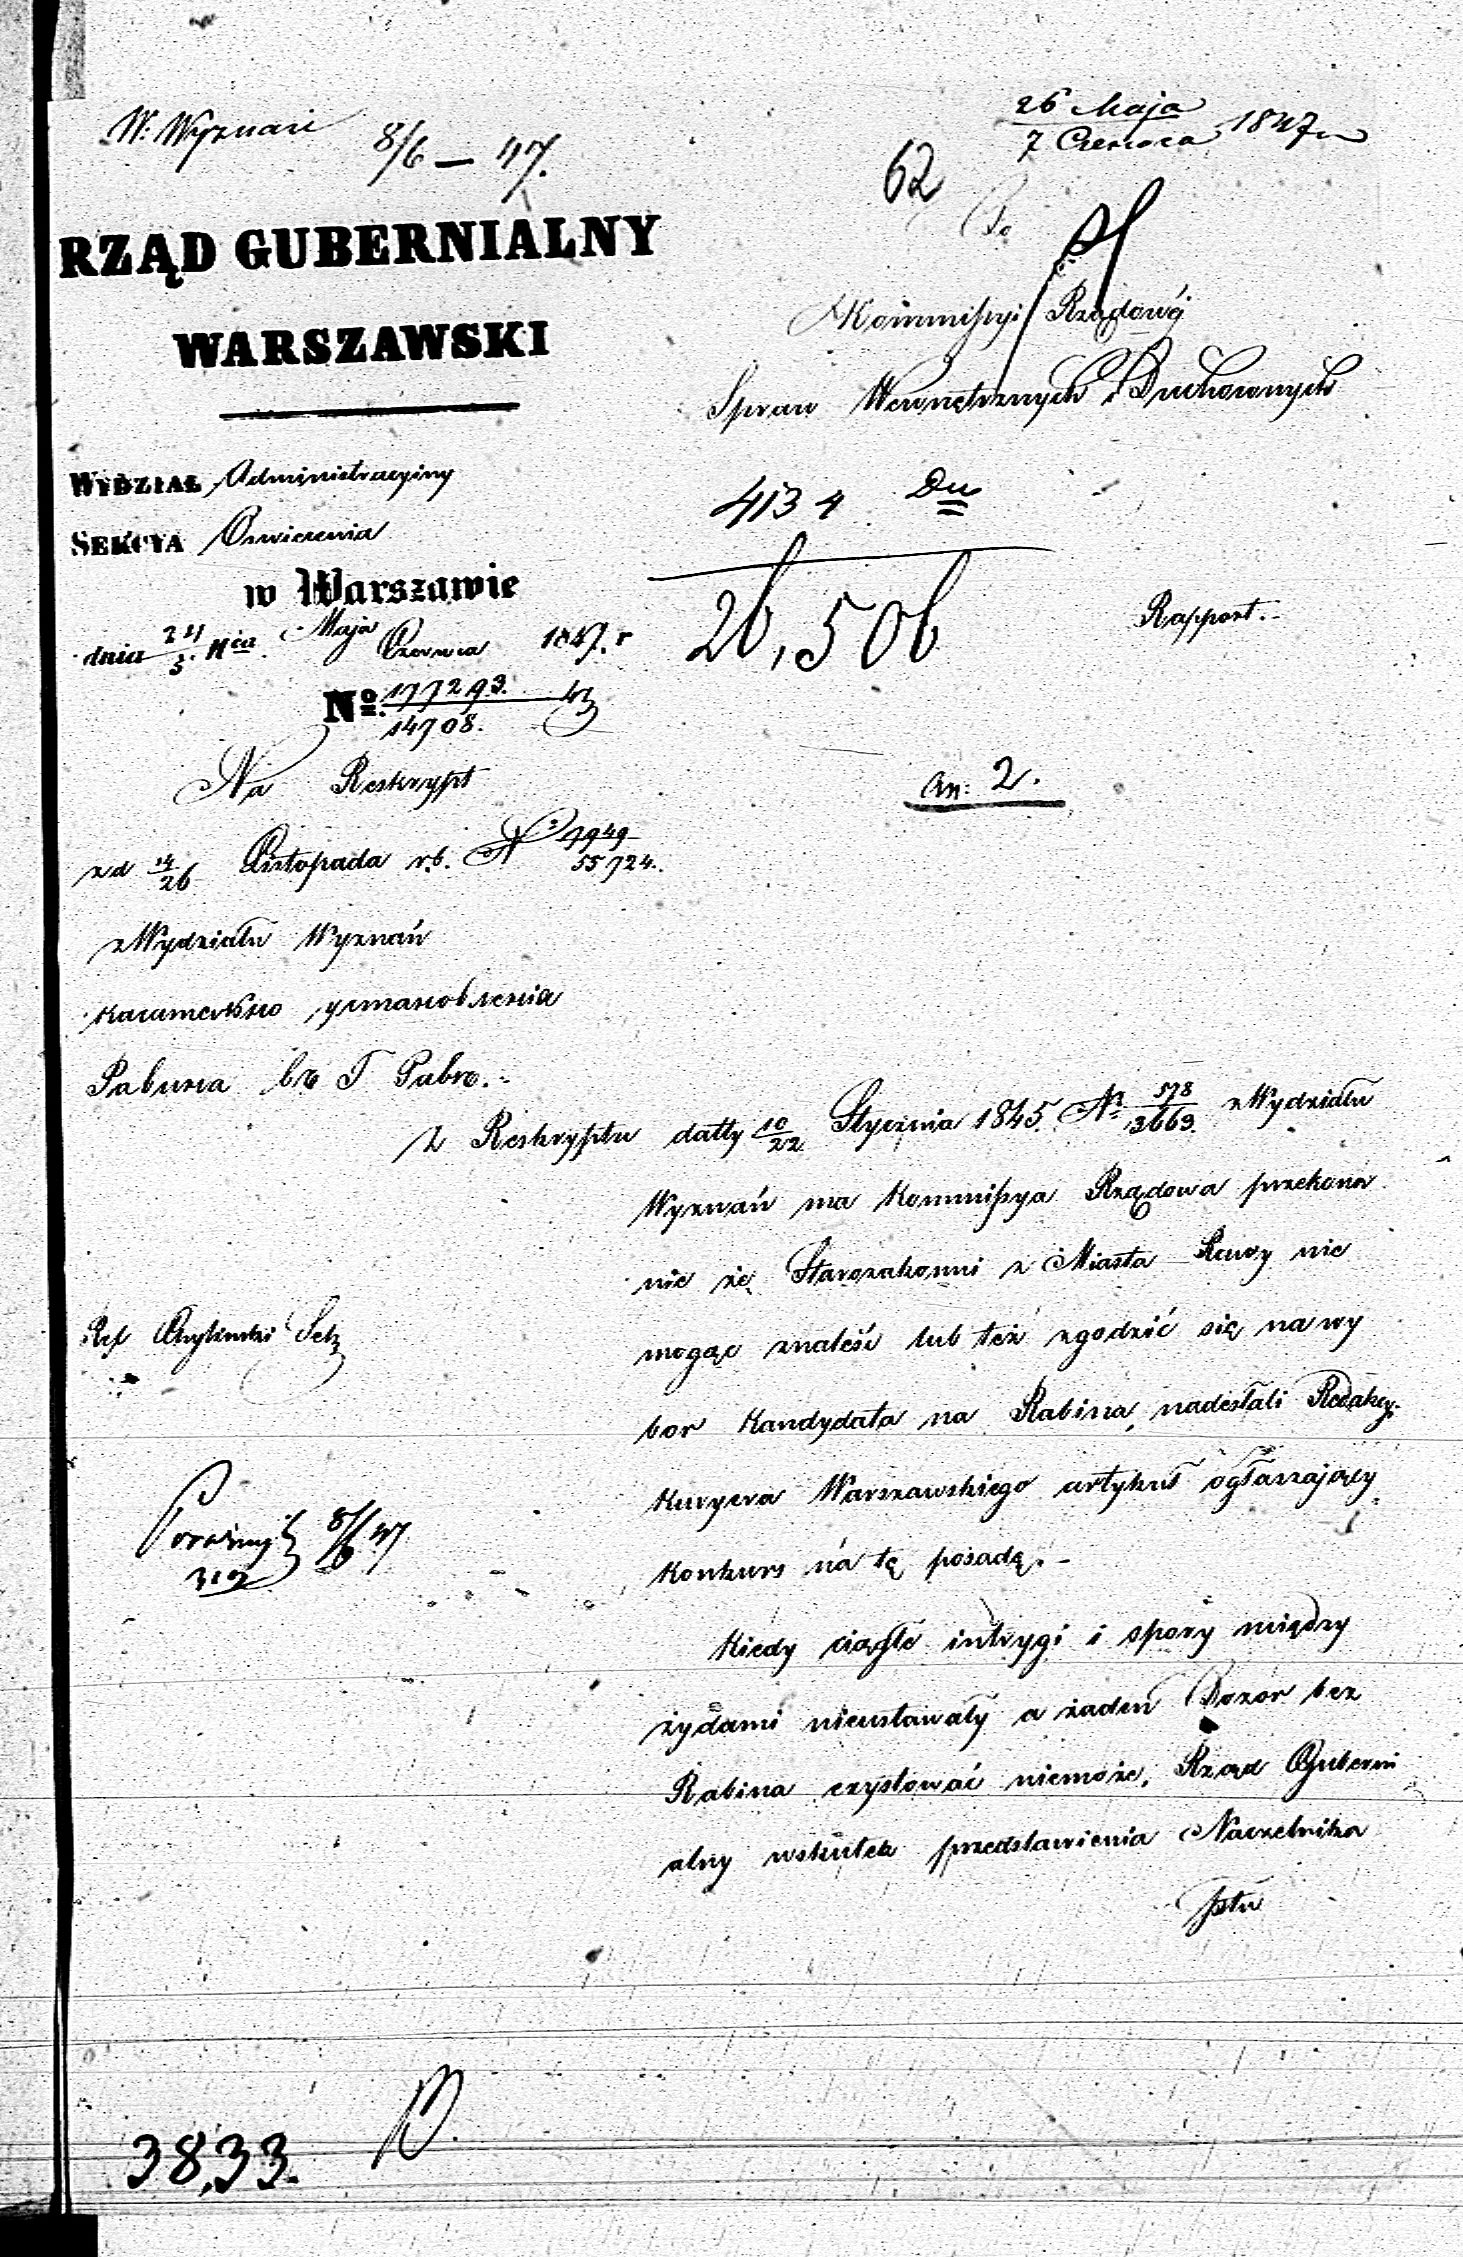 W: Wyznań 8/6 — 47.
26 Maja
7 Czerwca 1847
62
Do
RZĄD GUBERNIALNY
WARSZAWSKI
Kommissyi Rządowéj
Spraw Wewnętrznych i Duchownych
WYDZIAŁ Administracyiny
SEKCYA Oswiecenia
w Warszawie
dnia 24 Maja
5 Czerwca 1847. r
4134 Du
26,506
Rapport.-
No. 177293.
14708.
An: 2.
Na Reskrypt
z d 14/26 Listopada r.b. N 7949
55724.
z Wydziału Wyznań
Z Reskryptu datty 10/22 Stycznia 1845 No 578/3669 z Wydziału
Wyznań ma Kommissya Rządowa przekona
nie że Starozakonni z Miasta Rawy nie
mogąc znaleść lub też zgodzić się na wy
bor Kandydata na Rabina, nadesłali Redakcy:
Kuryera Warszawskiego artykuł ogłaszający
konkurs na tę posadę. -
Kiedy ciągłe intrygi i spory między
żydami nieustawały a żaden Dozór bez
Rabina exystować niemoże, Rząd Guberni
alny wskutek przedstawienia Naczelnika
Pttu
Ref
8/6 47
3833.